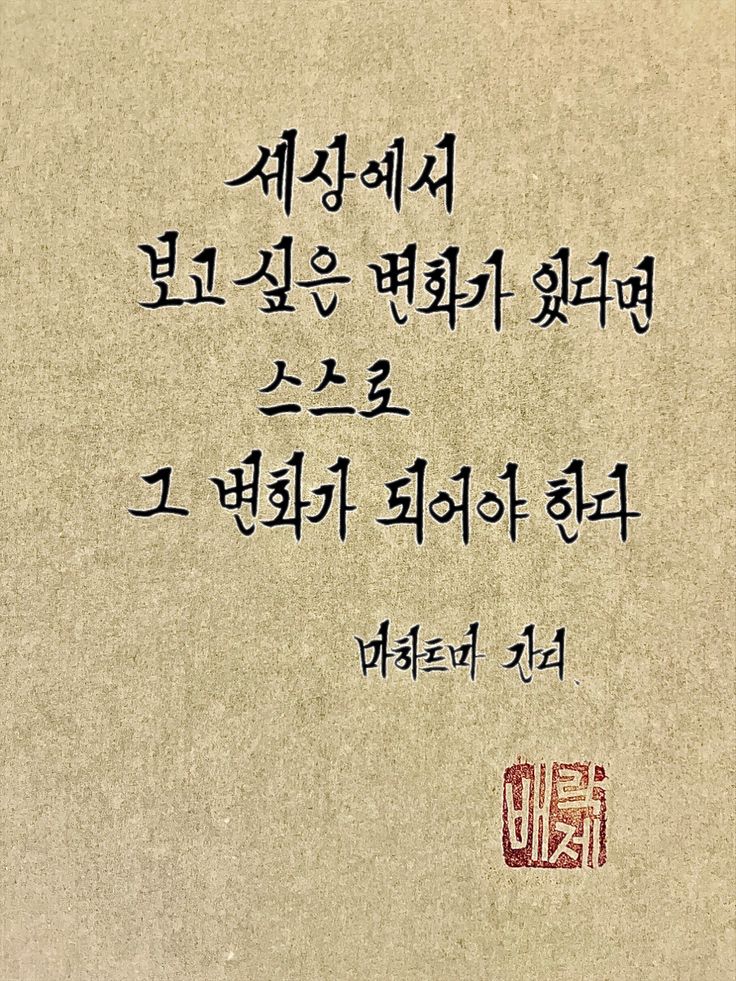 세상에서
보고 싶은 변화가 있다면
스스로
그 변화가 되어야 한다
마하트마 간디.
배락제